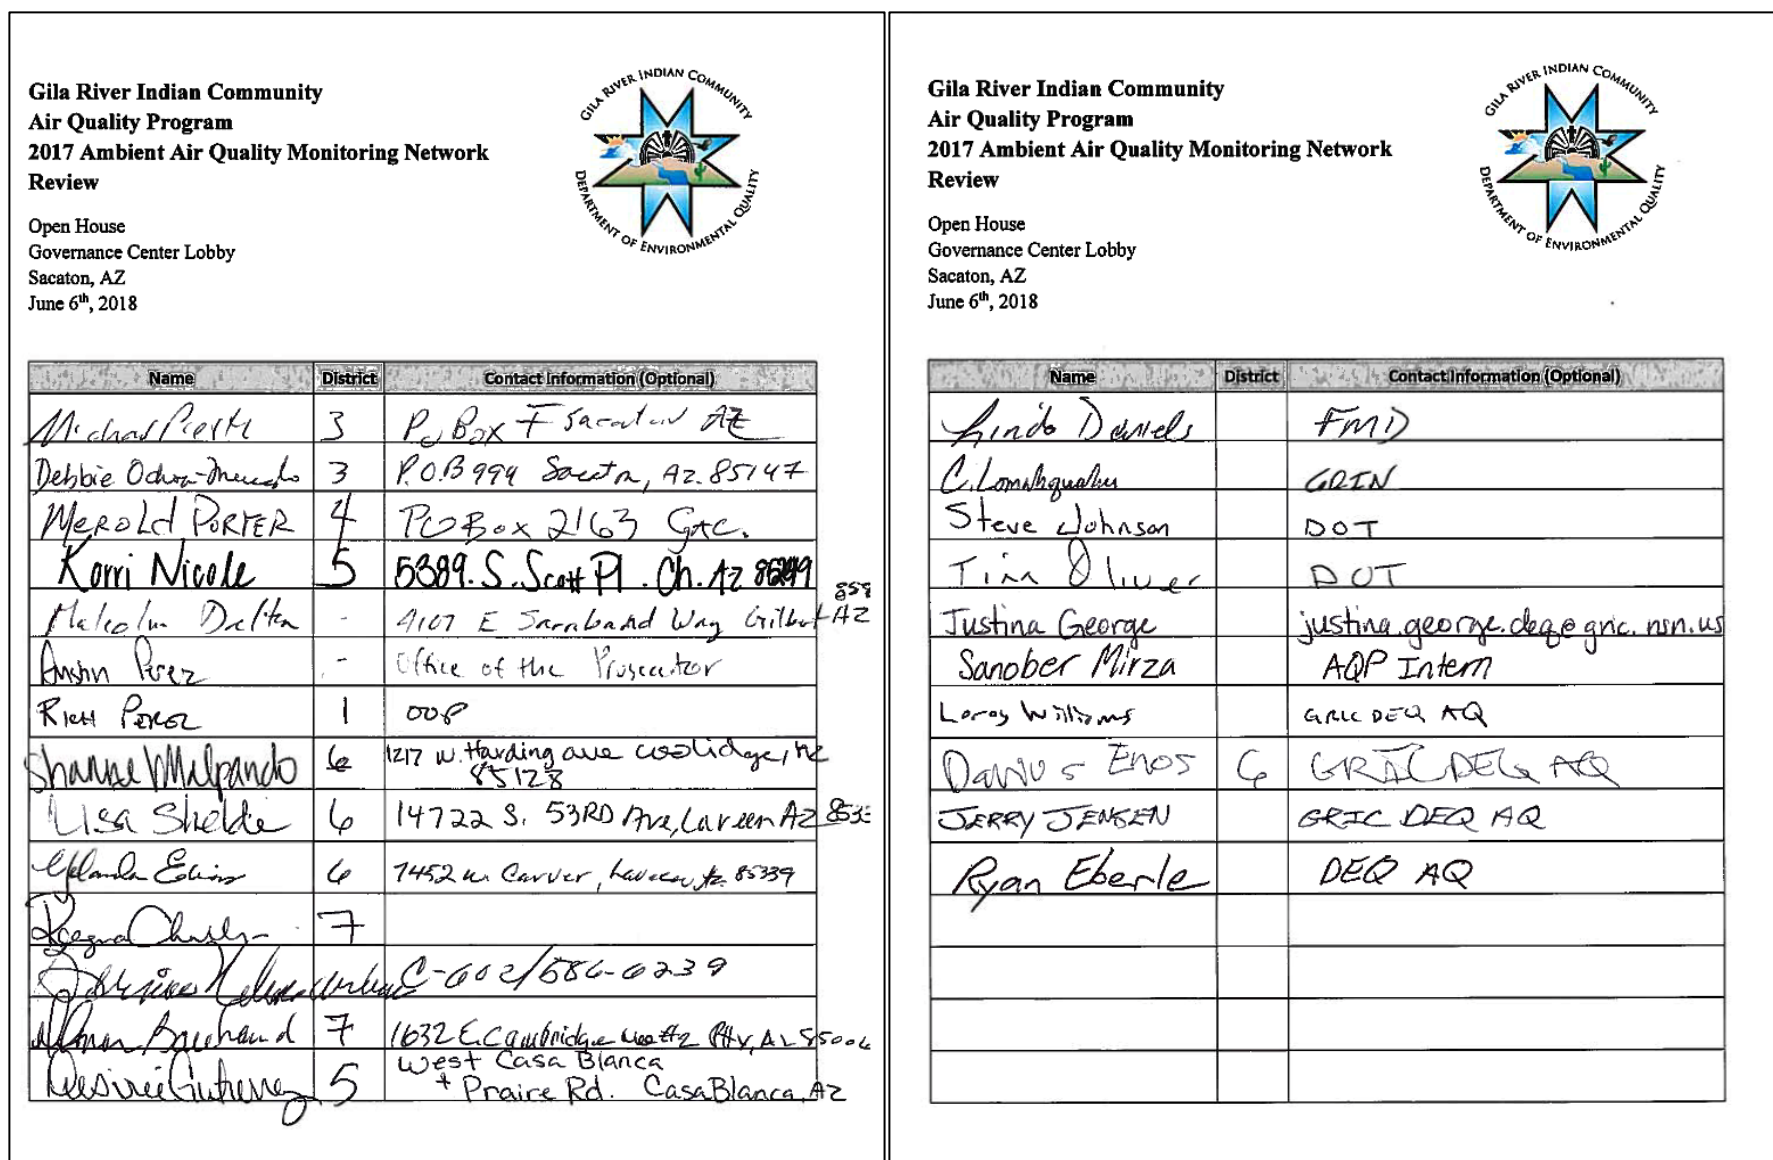 Gila River Indian Community
Air Quality Program
2017 Ambient Air Quality Monitoring Network
Review
GILA RIVER INDIAN COMMUNITY
DEPARTMENT OF ENVIRONMENTAL QUALITY
Open House
Governance Center Lobby
Sacaton, AZ
June 6th, 2018
Name District Contact Information (Optional)
3 P.O Box F Sacaton AZ
Debbie 3 P.O.B 999 AZ. 85147
MEROLd PORTER 4 PO Box 2163
Korri Nicole 5 5389. S. Scott Pl. Ch. AZ
Malcolm Dalton - E Way Gilbert AZ
Perez - Office of the Prosecutor
RICH PEREZ 1 OOP
6 1217 W. Harding ave coolidge,
85128
Lisa 6 14722 S. 53RD Ave, Laveen AZ
6 7452 W. Carver, 85339
7
C-602/586-6239
7 1632 E. Cambridge
Desiree Gutierrez 5 West Casa Blanca
+ Praire Rd. Casa Blanca, AZ
Gila River Indian Community
Air Quality Program
2017 Ambient Air Quality Monitoring Network
Review
GILA RIVER INDIAN COMMUNITY
DEPARTMENT OF ENVIRONMENTAL QUALITY
Open House
Governance Center Lobby
Sacaton, AZ
June 6th, 2018
Name District Contact Information (Optional)
Daniels FMD
C. GRIN
Steve Johnson DOT
Tim Oliver DOT
Justina George justina.george.deq@gric.nsn.us
Sanober Mirza AQP Intern
Leroy Williams GRIC DEQ AQ
Darius Enos 6 GRIC DEQ AQ
JERRY JENSEN GRIC DEQ AQ
Ryan Eberle DEQ AQ